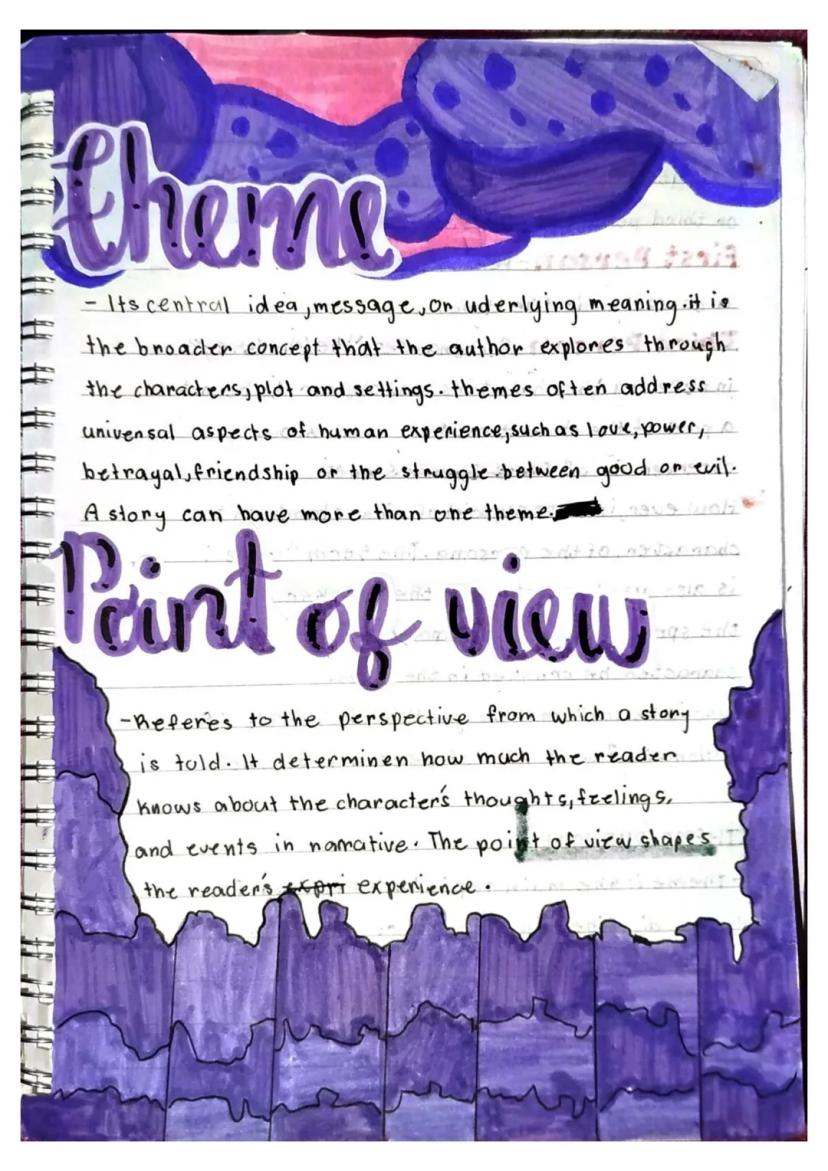 theme
- Its central idea, message, or uderlying meaning. it is
the broader concept that the author explores through
the characters, plot and settings. themes often address
universal aspects of human experience, such as love, power,
betrayal, friendship or the struggle between good or evil.
A story can have more than one theme.
Point of view
- Referes to the perspective from which a story
is told. It determinen how much the reader
knows about the character's thoughts, feelings,
and events in narrative. The point of view shapes
the reader's expri experience.